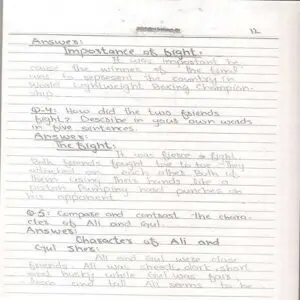 12
Answer:
Importance of fight.
It was important be
cause the winner of the final
was to represent the country in
world Lightweight Boxing Champion-
ship.
Q-4: How did the two friends
fight? Describe in your own words
in five sentences.
Answer:
The Fight:
It was fierce fight.
Both friends fought toe to toe. They
attacked on each other. Both of
them using their hands like a
piston pumping hard punches on
his opponent.
Q-5: Compare and contrast the chara-
cter of Ali and Gul.
Answer:
Character of Ali and
Gul Sher:
Ali and Gul were close
friends. Ali was dark, short
and husky while Gul was fair,
and tall. Ali seems to be